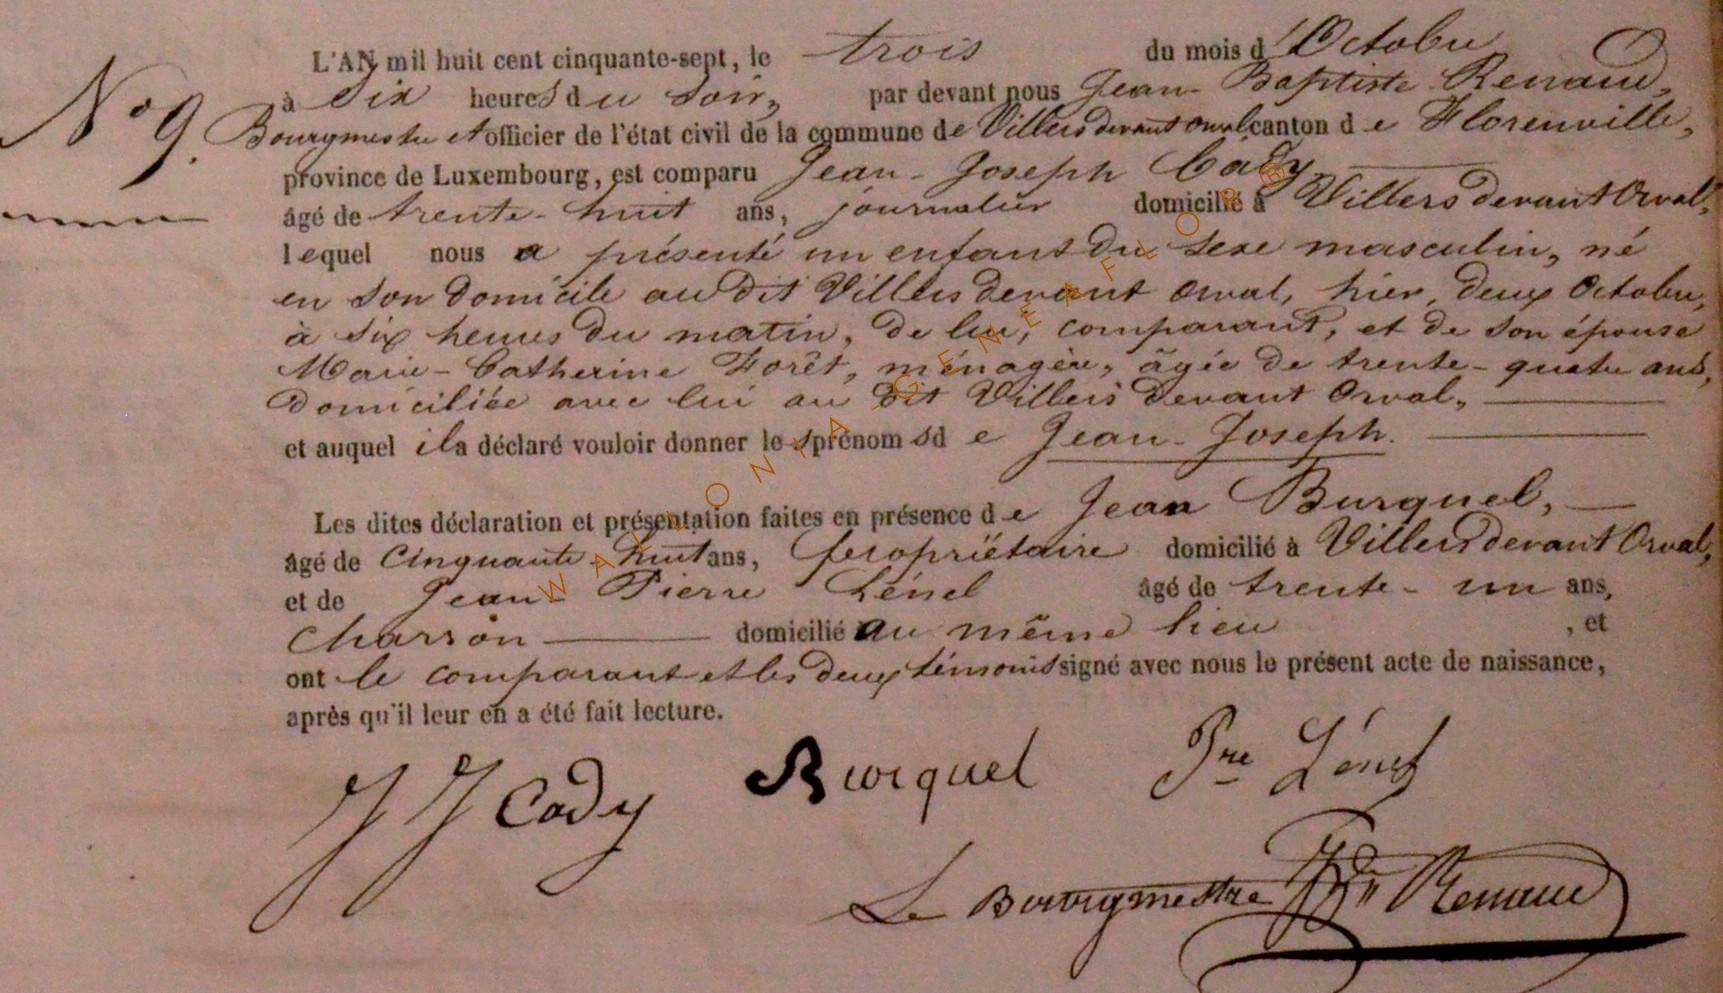 L'AN mil huit cent cinquante-sept, le trois du mois d'Octobre
à Six heures du Soir, par devant nous Jean-Baptiste Renaud,
N° 9.
Bourgmestre et officier de l'état civil de la commune de Villers devant orval canton de Florenville,
province de Luxembourg, est comparu Jean-Joseph Cady
âgé de trente-huit ans, journalier domicilié à Villers devant Orval,
lequel nous a présenté un enfant du Sexe masculin, né
en son domicile au dit Villers devant Orval, hier, deux Octobre,
à six heures du matin, de lui, comparant, et de son épouse
Marie-Catherine Forêt, ménagère, âgée de trente-quatre ans,
Domiciliée avec lui au dit Villers devant Orval,
et auquel il a déclaré vouloir donner les prénoms de Jean-Joseph.
Les dites déclaration et présentation faites en présence de Jean Burquel,
âgé de Cinquante-huit ans, propriétaire domicilié à Villers devant Orval,
et de Jean-Pierre Lénel âgé de trente-un ans,
Charron domicilié au même lieu, et
ont le comparant et les deux témoins signé avec nous le présent acte de naissance,
après qu'il leur en a été fait lecture.
J J Cady Burquel Pre Lénel
Le Bourgmestre Renaud
WALLONIA GENEAFLORB